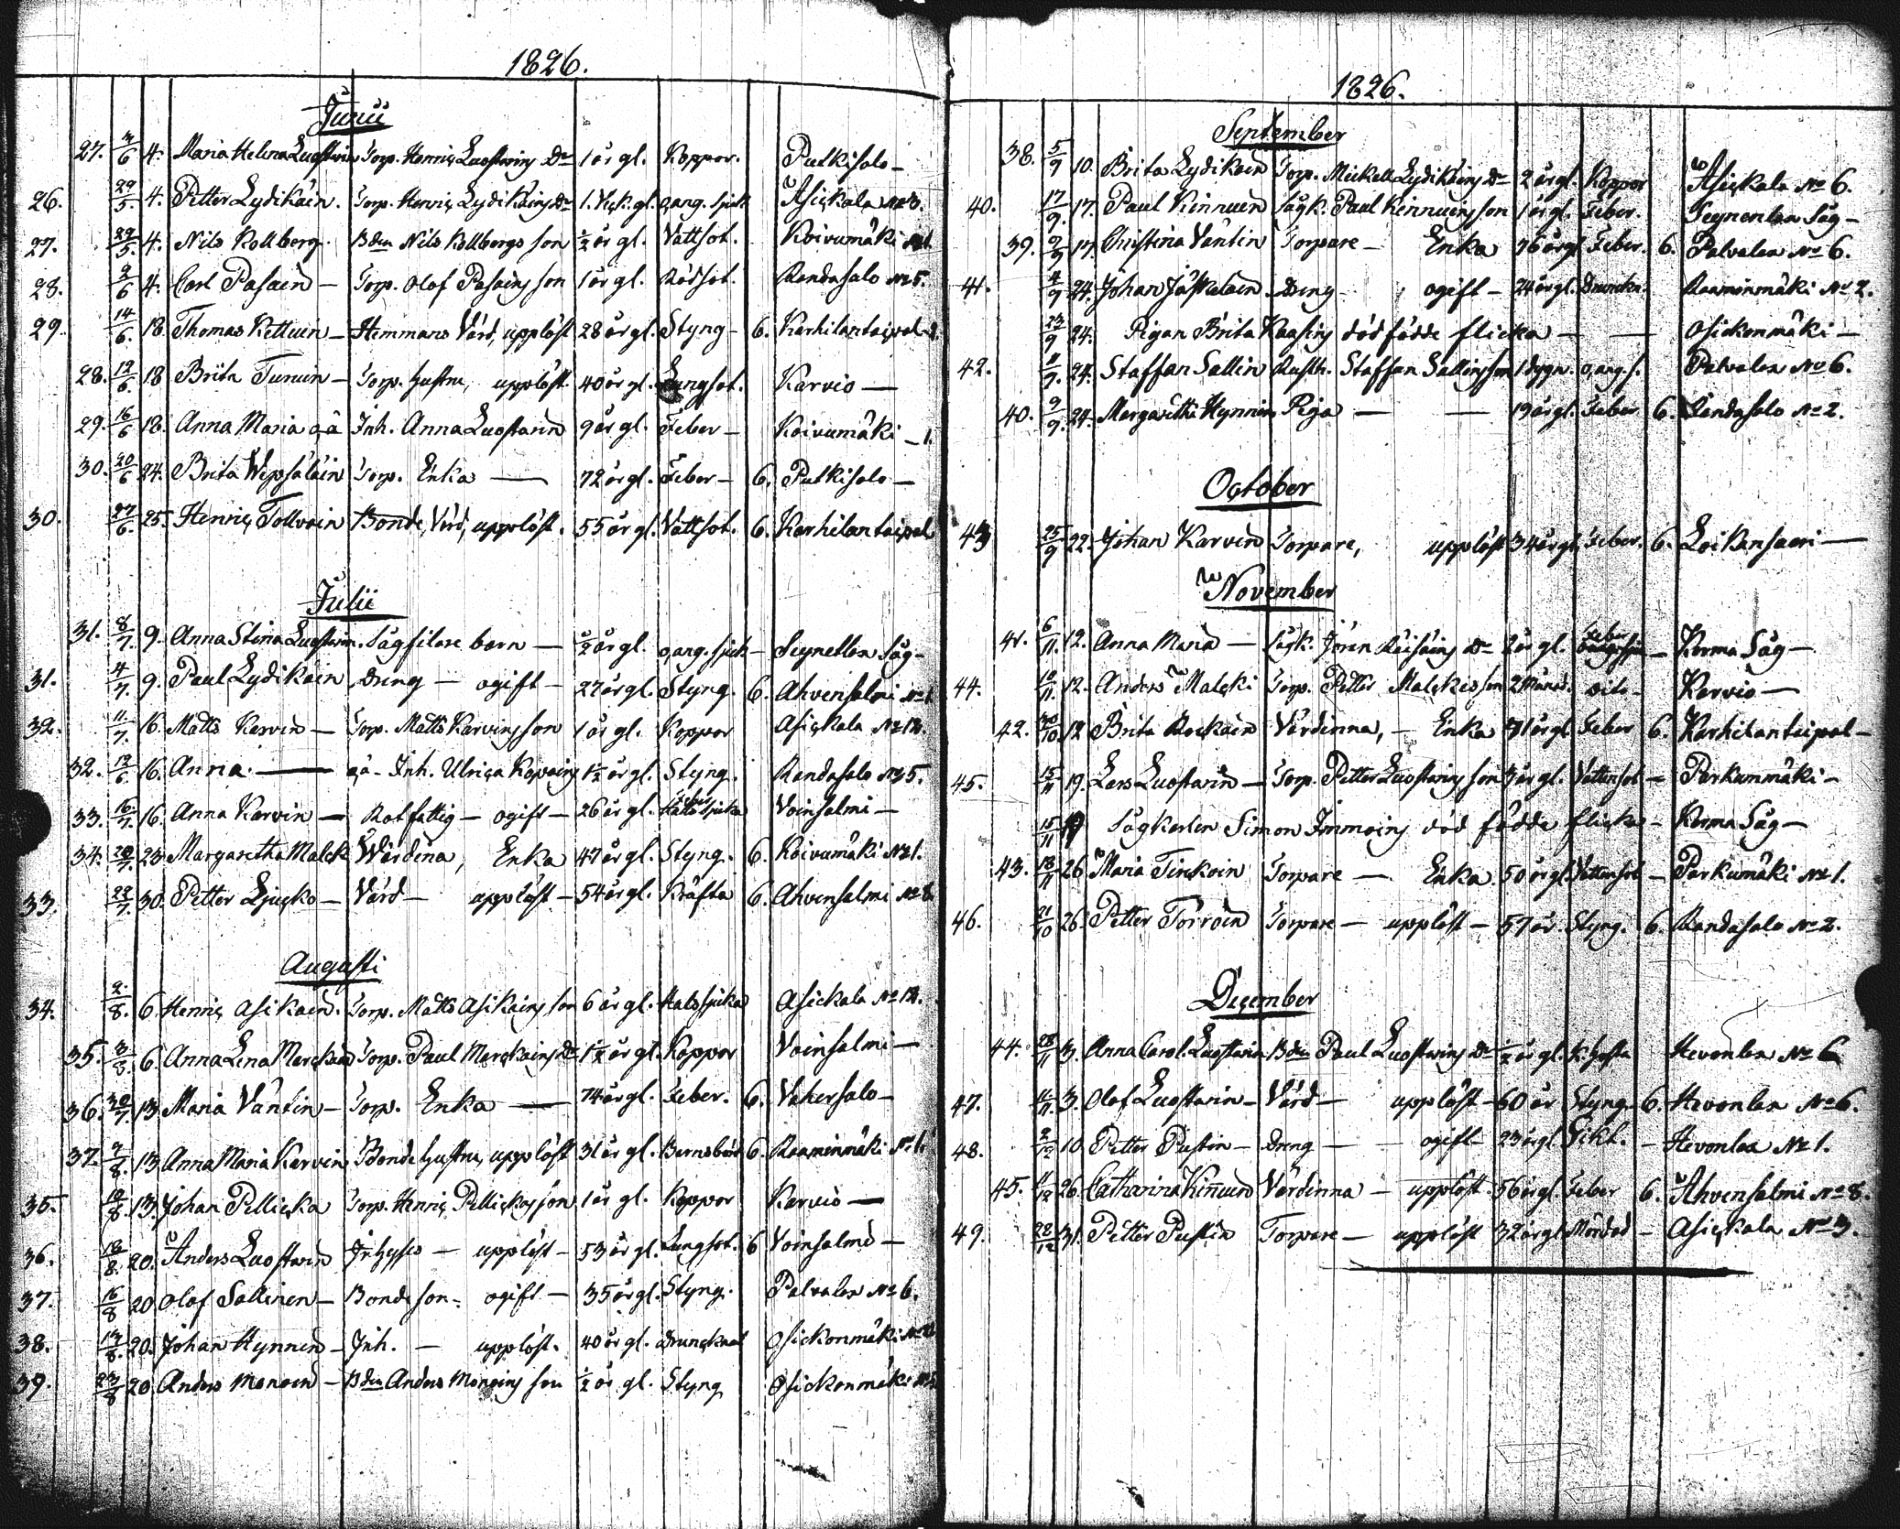 1826.
Junii
27. 3/6 4. Maria Helena Luostarin Torp. Henric Luostarins Dr 1 år gl. Koppor. Putkisalo —
26. 29/5. 4. Petter Lydikäin. Torp. Henric Lydikäins 1. Vick. gl. oang. sjuk Asickala No 3.
27. 29/5. 4. Nils Kollberg. Bdn Nils Kollbergs son ½ år gl. Vattsot. Koivumäki No 1.
28. 2/6 4. Carl Pasain — Torp. Olof Pasains son 1 år gl. Rödsot. Randasalo No 5.
29. 14/6. 18. Thomas Kettuin — Hemmans Värd, upplöst 28 år gl. Styng — 6. Karhilantaipal
28. 12/6 18 Brita Turuin — Torp. hustru, upplöst 40 år gl. Lungsot. Karvio —
29. 16/6 18. Anna Maria oä Inh. Anna Luostarin 9 år gl. Feber — Koivumäki — 1.
30. 20/6 24. Brita Wepsäläin Torp. Enka — 72 år gl. Feber — 6. Putkisalo —
30. 27/6. 25. Henric Tollvain Bonde, Värd, upplöst. 55 år gl. Vattsot. 6. Karhilantaipal
Julii
31. 8/7. 9. Anna Stina Luostarin. Sågfilare barn — ½ år gl. oang. sjuk — Seynetlax Såg —
31. 4/7. 9. Paul Lydikäin Dreng — ogift — 27 år gl. Styng. 6. Ahvensalmi No 1
32. 11/7. 16. Matts Karvin — Torp. Matts Karvins son 1 år gl. Koppor Asickala No 12.
32. 12/6 16. Anna — oä — Inh. Ulrica Kopoins 1½ år gl. Styng. Randasalo No 5.
33. 16/7. 16. Anna Karvin — Rotfattig — ogift — 26 år gl. Voinsalmi —
34. 20/7. 23. Margaretha Malck Värdina, Enka 47 år gl. Styng. 6. Koivumäki No 1.
33. 22/7. 30. Petter Ljucko — Värd — upplöst — 54 år gl. Kräfta 6. Ahvensalmi No 8.
Augusti
34. 2/8. 6 Henric Asikain. Torp. Matts Asikains son 6 år gl. Halssjuka Asickala No 12.
35. 3/8. 6. Anna Lena Marckain Torp. Paul Marckains Dr 1½ år gl. Koppor Voinsalmi —
36. 30/7. 13. Maria Väntin — Torp. Enka — 74 år gl. Feber. 6. Vahersalo —
37. 7/8. 13. Anna Maria Karvin Bonde hustru, upplöst 31 år gl. Barnsbörd 6. Raaminmäki No 1.
35. 10/8. 13. Johan Pellicka Torp. Henric Pellickas son 1 år gl. Koppor Karvio —
36. 18/8. 20. Anders Luostarin Inhyses — upplöst — 53 år gl. Lungsot. 6 Voinsalmi —
37. 16/8 20 Olof Sallinen — Bonde son — ogift — 35 år gl. Styng. Palvalax No 6.
38. 17/8. 20. Johan Hynnin — Inh. — upplöst. 40 år gl. Drunknat Osickonmäki No 2
39. 23/8 20. Anders Monoin — Bdn Anders Monoins son ½ år gl. Styng Osickonmäki
1826.
September
38. 5/9 10. Brita Lydikäin Torp. Mickell Lydikäins Dr 2 år gl. Koppor Asickala No 6.
40. 17/9. 17. Paul Kinnuin Sågk. Paul Kinnuins son 1 år gl. Feber. Seynenlax Såg —
39. 9/9 17. Christina Väntin Torpare — Enka 76 år gl. Feber. 6. Palvalax No 6.
41. 4/9 24. Johan Jäskeläin Dreng — ogift — 24 år gl. Raaminmäki No 2.
23/9 24. Pigan Brita Kaasins dödfödde flicka — — Osickonmäki —
42. 24. Staffan Sallin Rusth. Staffan Sallins son 1 dygn. oang. s. Palvalax No 6.
40. 9/9. 24. Margaretha Hynnin Piga — — 19 år gl. Feber 6. Randasalo No 2.
October
43 25/9 22. Johan Karvin Torpare, upplöst 34 år gl. Feber. 6. Loikansaari —
November
41. 6/11. 12. Anna Maria — Sågk. Jören Räisäins Dr 2 år gl. Feber — Kerma Såg —
44. 10/11 12. Anders Malcki Torp. Petter Malckis son 2 Månad. dito — Karvio —
42. 30/10 12 Brita Rockain Värdinna, — Enka 71 år gl. Feber 6. Karhilantaipal —
45. 15/11 19. Lars Luostarin — Torp. Petter Luostarins son 3 år gl. Vattensot — Parkumäki —
15/11 19 Sågkarlen Simon Immoins död födde flicka — Kerma Såg —
43. 18/11 26 Maria Tirckoin Torpare — Enka. 50 år gl. Vattensot — Parkumäki No 1.
46. 21/10 26. Petter Torroin Torpare — upplöst — 57 år. Styng. 6. Randasalo No 2.
December
44. 28/11 3. Anna Carol. Luostarin Bdn Paul Luostarins Dr ½ år gl. Kikhosta Hevonlax No 6
47. 3. Olof Luostarin — Värd — upplöst — 60 år Styng 6. Hevonlax No 6.
48. 2/12 10. Petter Pustin — Dreng — — ogift — 23 år gl. Gikt. — Hevonlax No 1.
45. 26. Catharina Kinnuin Värdinna — upplöst — 56 år gl. Feber 6. Ahvensalmi No 8.
49. 28/12 31. Petter Pustin Torpare — upplöst 32 år gl. Mördad — Asickala No 3.